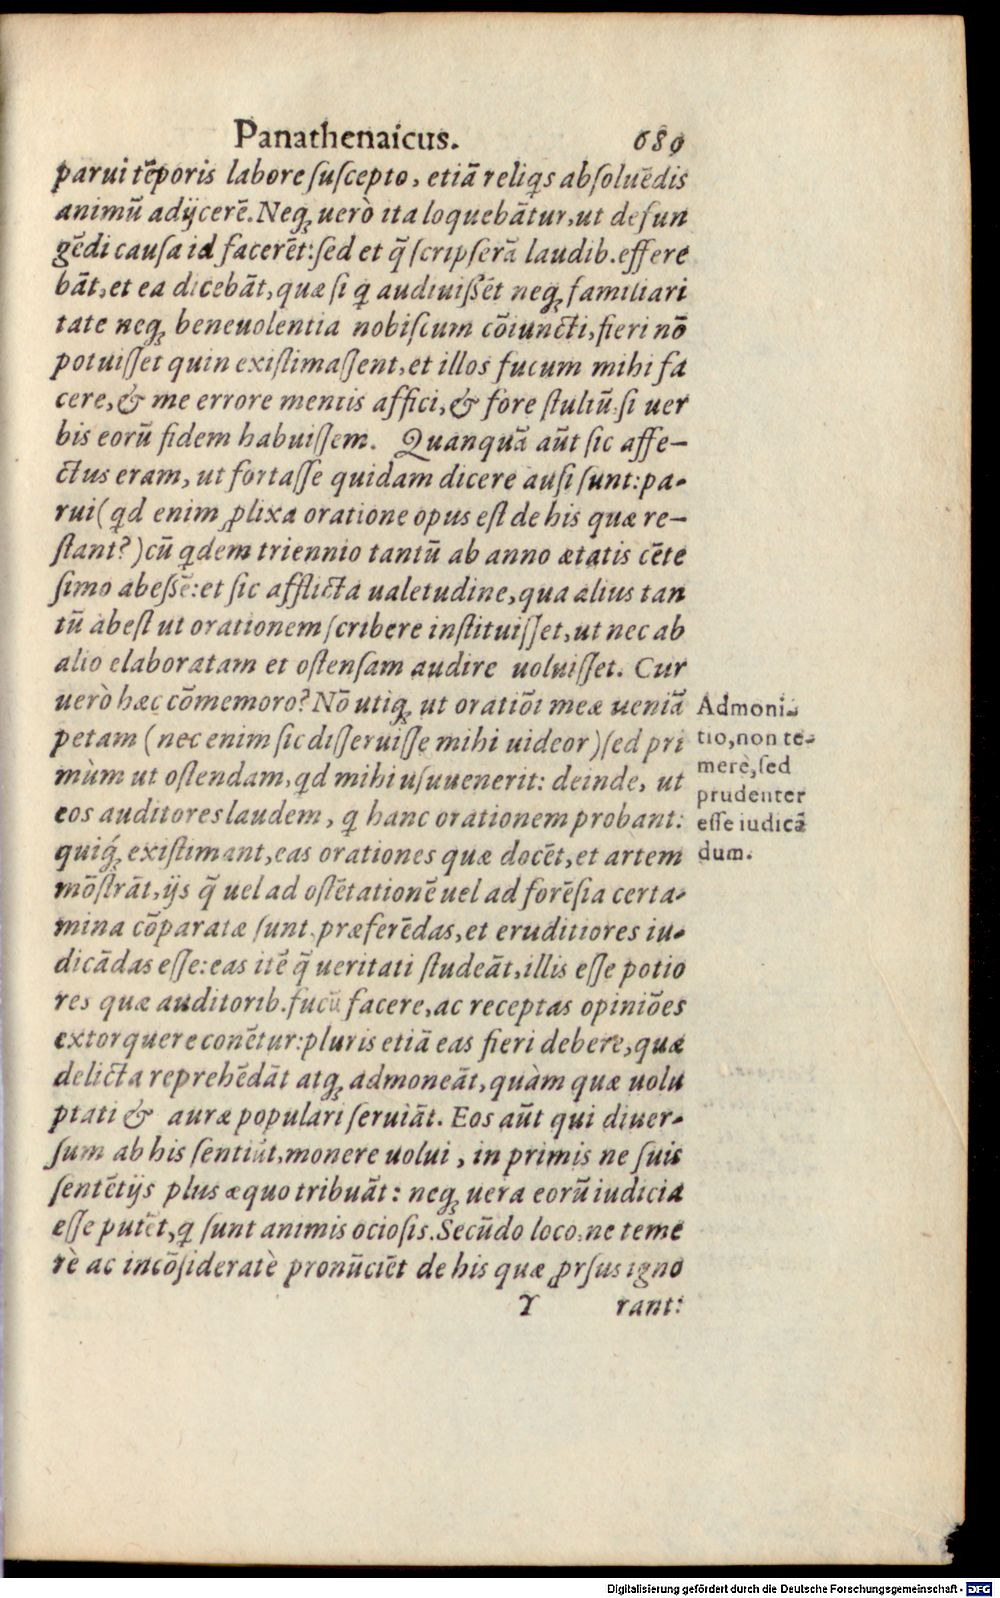 Panathenaicus. 689
parui tẽporis labore ſuſcepto, etiã reliqs abſoluẽdis
animũ adijcerẽ. Neqꝫ uerò ita loquebãtur, ut defun
gẽdi cauſa id facerẽt: ſed et q̃ ſcripſerã laudib. effere
bãt, et ea dicebãt, quæ ſi q audiuiſſẽt neqꝫ familiari
tate neqꝫ beneuolentia nobiſcum cõiuncti, fieri nõ
potuiſſet quin exiſtimaſſent, et illos fucum mihi fa
cere, & me errore mentis affici, & fore ſtultũ, ſi uer
bis eorũ fidem habuiſſem. Quanquã aũt ſic affe-
ctus eram, ut fortaſſe quidam dicere auſi ſunt: pa-
rui (qd enim ꝓlixa oratione opus eſt de his quæ re-
ſtant?) cũ qdem triennio tantũ ab anno ætatis cẽte
ſimo abeſſẽ: et ſic afflicta ualetudine, qua alius tan
tũ abeſt ut orationem ſcribere inſtituiſſet, ut nec ab
alio elaboratam et oſtenſam audire uoluiſſet. Cur
uerò hæc cõmemoro? Nõ utiqꝫ ut oratiõi meæ ueniã
petam (nec enim ſic diſſeruiſſe mihi uideor) ſed pri
mùm ut oſtendam, qd mihi uſuuenerit: deinde, ut
eos auditores laudem, q hanc orationem probant:
quiqꝫ́ exiſtimant, eas orationes quæ docẽt, et artem
mõſtrãt, ijs q̃ uel ad oſtẽtationẽ uel ad forẽſia certa-
mina cõparatæ ſunt, præferẽdas, et eruditiores iu-
dicãdas eſſe: eas itẽ q̃ ueritati ſtudeãt, illis eſſe potio
res quæ auditorib. fucũ facere, ac receptas opiniões
extorquere conẽtur: pluris etiã eas fieri debere, quæ
delicta reprehẽdãt atqꝫ admoneãt, quàm quæ uolu
ptati & auræ populari ſeruiãt. Eos aũt qui diuer-
ſum ab his ſentiũt, monere uolui, in primis ne ſuis
ſentẽtijs plus æquo tribuãt: neqꝫ uera eorũ iudicia
eſſe putẽt, q ſunt animis ocioſis. Secũdo loco, ne teme
rè ac incõſideratè pronũciẽt de his quæ ꝓrſus igno
Y rant:
Admoni-
tio, non te-
merè, ſed
prudenter
eſſe iudicã
dum.
Digitalisierung gefördert durch die Deutsche Forschungsgemeinschaft - DFG